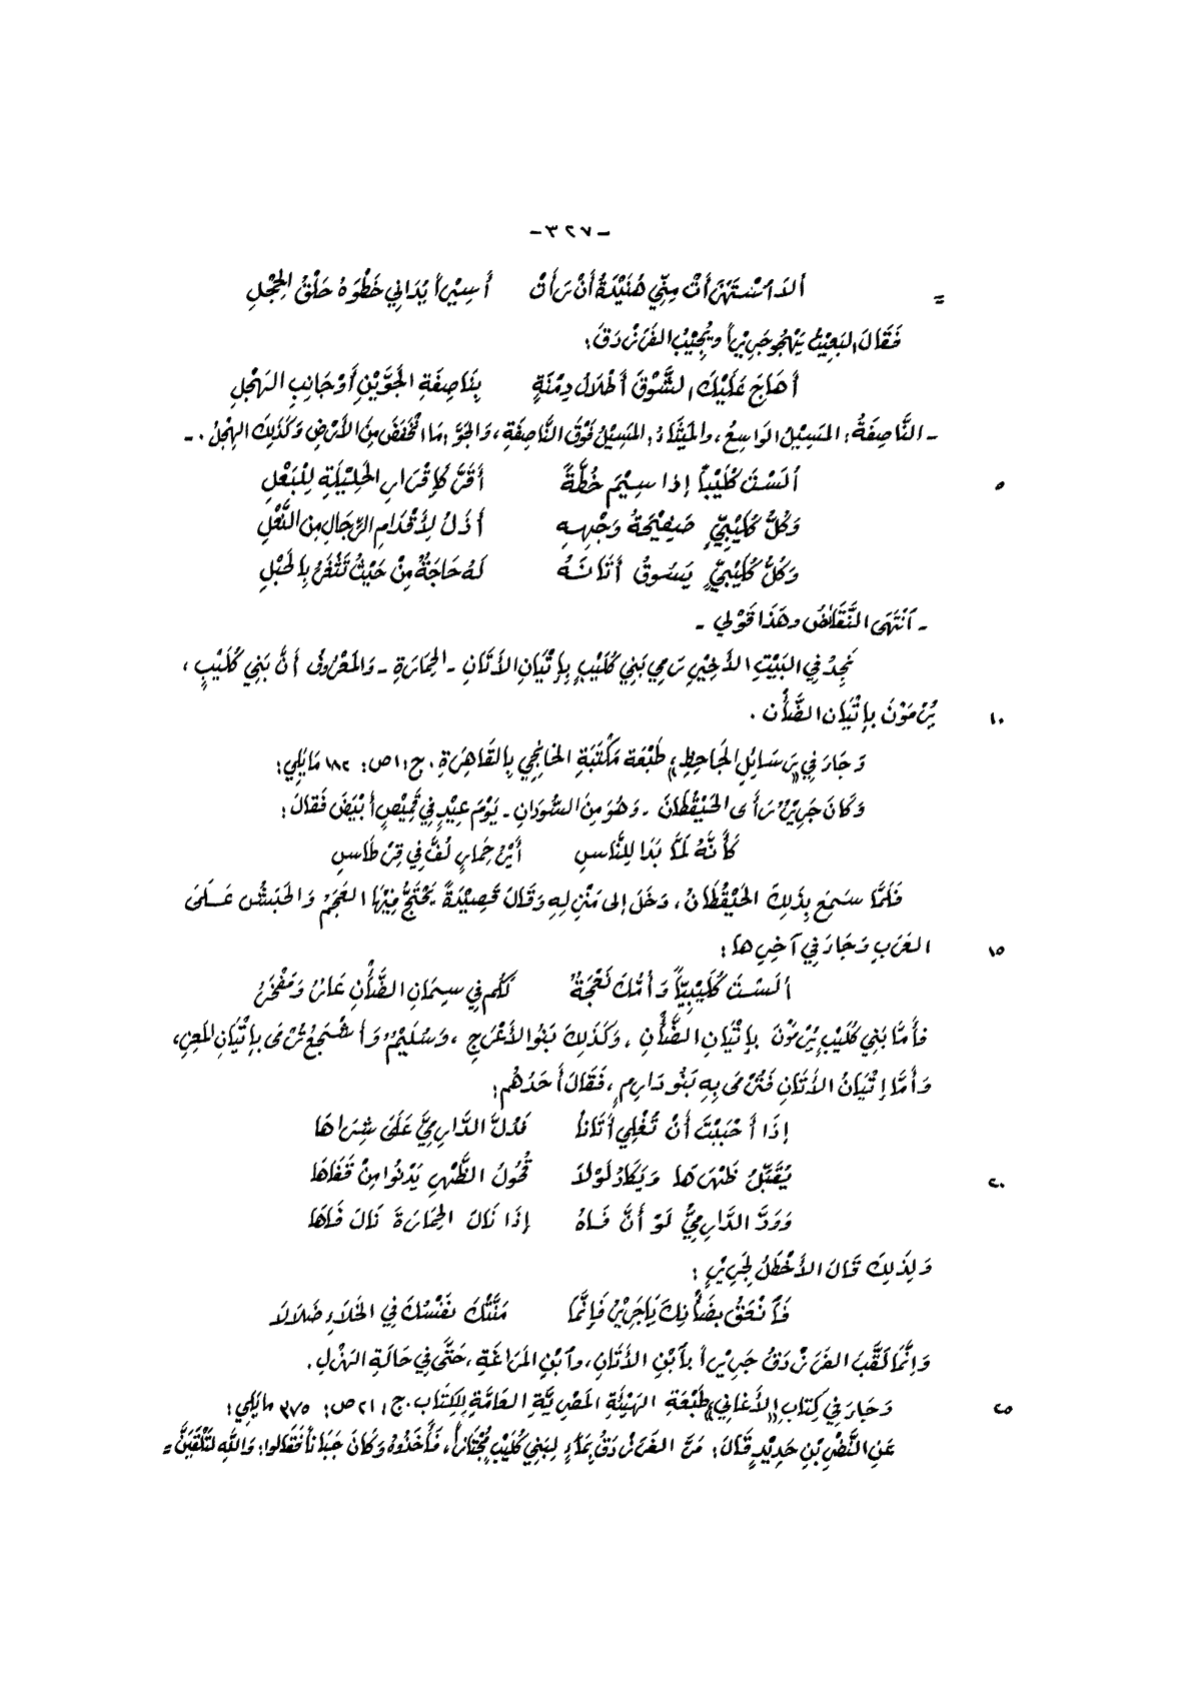 -٣٢٧-
= أَلَا اسْتَهْزَأَتْ مِنِّي هُنَيْدَةُ أَنْ رَأَتْ أَسِيْراً يُدَانِي خَطْوَهُ حَلْقُ الحِجْلِ
فَقَالَ البَعِيْثُ يَهْجُو جَرِيْراً ويُجِيْبُ الفَرَزْدَقَ:
أَهَاجَ عَلَيْكَ الشَّوْقَ أَطْلَالُ دِمْنَةٍ بِنَاصِفَةِ الجَوَّيْنِ أَوْ جَانِبِ الهَجْلِ
- النَّاصِفَةُ: المَسِيْلُ الوَاسِعُ، والمَيْثَاءُ: المَسِيْلُ فَوْقَ النَّاصِفَةِ، وَالجَوُّ: مَا انْخَفَضَ مِنَ الأَرْضِ وَكَذَلِكَ الهِجْلُ. -
٥ أَلَسْتَ كُلَيْباً إذا سِيْمَ خُطَّةً أَقَرَّ كَإِقْرَارِ الحَلِيْلَةِ لِلْبَعْلِ
وَكُلُّ كُلَيْبِيٍّ صَفِيْحَةُ وَجْهِهِ أَذَلُّ لِأَقْدَامِ الرِّجَالِ مِنَ النَّعْلِ
وَكُلُّ كُلَيْبِيٍّ يَسُوقُ أَتَانَهُ لَهُ حَاجَةٌ مِنْ حَيْثُ تُثْفَرُ بِالحَبْلِ
- اَنْتَهَى النَّقَائِضُ وهَذَا قَوْلِي -
نَجِدُ فِي البَيْتِ الأَخِيْرِ رَمِي بَنِي كُلَيْبٍ بِإِتْيَانِ الأَتَانِ - الحِمَارَةِ - وَالمَعْرُوفُ أَنَّ بَنِي كُلَيْبٍ،
١٠ يُرْمَوْنَ بِإِتْيَانِ الضَّأْنِ .
وَجَاءَ فِي «رَسَائِلِ الجَاحِظِ» طَبْعَة مَكْتَبَةِ الخَانجِي بِالقَاهِرَةِ . ج: ١ ص: ١٨٢ مَايَلِي:
وَكَانَ جَرِيْرٌ رَأَى الحَيْقُطَانَ - وَهُوَ مِنَ السُّودَانِ - يَوْمَ عِيْدٍ فِي قَمِيْصٍ أَبْيَضَ فَقَالَ:
كَأَنَّهُ لَمَّا بَدَا لِلنَّاسِ أَيْرُ حِمَارٍ لُفَّ فِي قِرْطَاسِ
فَلَمَّا سَمِعَ بِذَلِكَ الحَيْقُطَانُ، دَخَلَ إلى مَنْزِلِهِ وَقَالَ قَصِيْدَةً يَحْتَجُّ فِيْهَا العَجَمُ وَالحَبَشُ عَلَى
١٥ العَرَبِ وَجَاءَ فِي آخِرِهَا:
أَلَسْتَ كُلَيْبِيّاً وَأُمُّكَ نَعْجَةٌ لَكُم فِي سِمَانِ الضَّأْنِ عَارٌ وَمَفْخَرُ
فأَمَّا بَنِي كُلَيْبٍ يُرْمَوْنَ بِإِتْيَانِ الضَّأْنِ ، وَكَذَلِكَ بَنُو الأَعْرَجِ ، وَسُلَيْمٌ وَأَشْجَعُ تُرْمَى بِإِتْيَانِ المَعِزِ،
وَأَمَّا إِتْيَانُ الأَتَانِ فَتُرْمَى بِهِ بَنُو دَارِمٍ ، فَقَالَ أَحَدُهُم:
إِذَا أَحْبَبْتَ أَنْ تُغْلِي أَتَاناً فَدُلَّ الدَّارِمِيَّ عَلَى شِرَاهَا
٢٠ يُقَبِّلُ ظَهْرَهَا وَيَكَادُ لَوْلَا قُحُولُ الظَّهْرِ يَدْنُوا مِنْ قَفَاهَا
وَوَدَّ الدَّارِمِيُّ لَوْ أَنَّ فَاهُ إِذَا نَالَ الحِمَارَةَ نَالَ فَاهَا
وَلِذَلِكَ قَالَ الأَخْطَلُ لِجَرِيْرٍ :
فَاَنْعَقْ بِضَأْنِكَ يَا جَرِيْرُ فَإِنَّمَا مَنَّتْكَ نَفْسُكَ فِي الخَلَاءِ ضَلَالَا
وَإِنَّمَا لَقَّبَ الفَرَزْدَقُ جَرِيْراً بِاَبْنِ الأَتَانِ، واَبْنِ المَرَاغَةِ ، حَتَّى فِي حَالَةِ الهَزْلِ .
٢٥ وَجَاءَ فِي كِتَابِ «الأَغَانِي» طَبْعَةِ الهَيْئَةِ المَصْرِيَّةِ العَامَّةِ لِلكِتَابِ . ج: ٢١ ص: ٣٧٥ مايَلِي:
عَنِ النَّضْرِ بْنِ حَدِيْدٍ قَالَ: مَرَّ الفَرَزْدَقُ بِمَاءٍ لِبَنِي كُلَيْبٍ مُجْتَازاً، فَأَخَذُوهُ وَكَانَ جَبَاناً فَقَالوا: وَاللهِ لَتَلْقَيَنَّ =